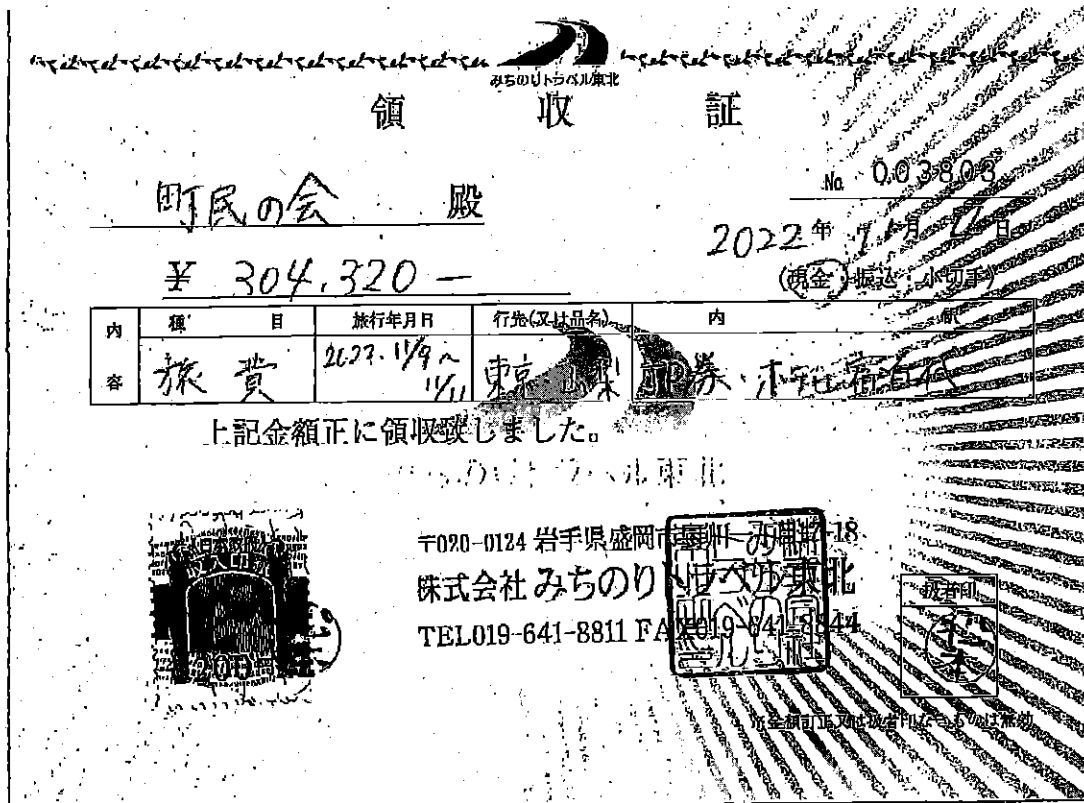 みちのりトラベル東北
領収証
No. 003803
町民の会 殿
2022年 11月 日
¥ 304,320 —
(現金・振込・小切手)
内容 種目 旅行年月日 行先(又は品名) 内訳
旅費 2022. 11/9〜11/11 東京 山梨 JR券・ホテル宿泊代
上記金額正に領収致しました。
みちのりトラベル東北
〒020-0124 岩手県盛岡市厨川 18
株式会社みちのりトラベル東北
TEL019-641-8811 FAX019-641-8844
扱者印
収入印紙
200
※金額訂正又は扱者印なきものは無効